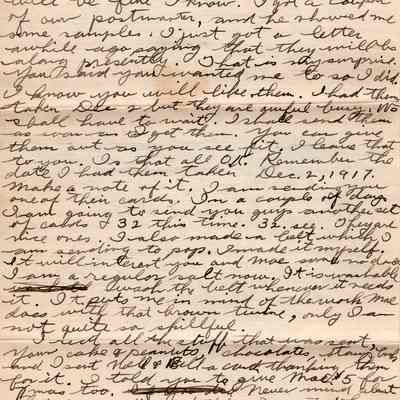 will be fine I know. I got a
of our postmaster, and he showed me
some samples. I just got a letter
awhile ago saying that they will be
along presently. That is my surprise.
You said you wanted me to so I did.
I know you will like them. I had them
taken Dec. 2 but they are awful busy. We
shall have to wait. I shall send them
as soon as I get them. You can give
them out as you see fit. I leave that
to you. Is that all O.K. Remember the
date I had them taken Dec. 2, 1917.
Make a note of it. I am sending you
one of their cards. In a couple of days
I am going to send you guys another set
of cards & 32 this time. 32 set. They are
nice ones. I also made a belt which I
am sending to pop. I made it myself,
it will interest you and Mae some no doubt
I am a regular salt now. It is washable
wash the belt whenever it needs
it. It puts me in mind of the work Mae
does with that brown twine, only I am
not quite so skillful.
I rec'd all the stuff that was sent,
your cake & peanuts, chocolates,
and I sent a card thanking them
for it. I told you to give Mae 5 for
Xmas too. Never mind about